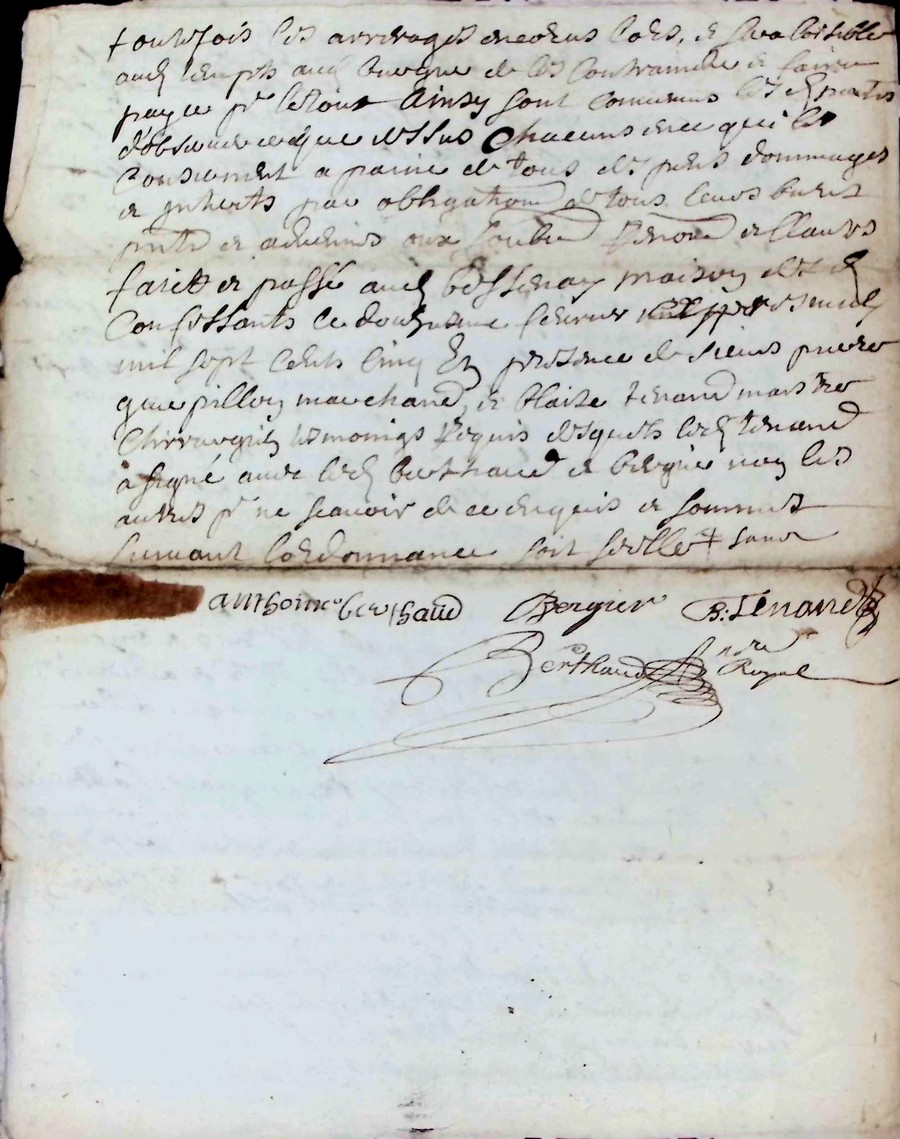 touttefois les arrerages encourus lors, & sera loisible
aud temps aud bergier de les contraindre & faire
payer pr le tout Ainsy sont convenus lesd parties
d'observer ce que dessus Chacuns en ce qui les
Conserment a paine de tous despens dommages
& jntherts par obligation de tous leurs biens
pnts & advenirs aux Renon & Clauses
faict & passé aud bessenay maison desd
Confessants ce douziesme feuvrier
mil sept cents cinq En presence de sieurs pierre
pillon marchand, & blaize tenand maistre
Chirurgien tesmoings Requis desquels led tenand
a signé avec led berthaud & bergier non les
autres pr ne scavoir de ce enquis & sommes
suivant l'ordonnance soit scellé
anthoine berthaud Bergier B. Tenand
Berthaud nore Royal